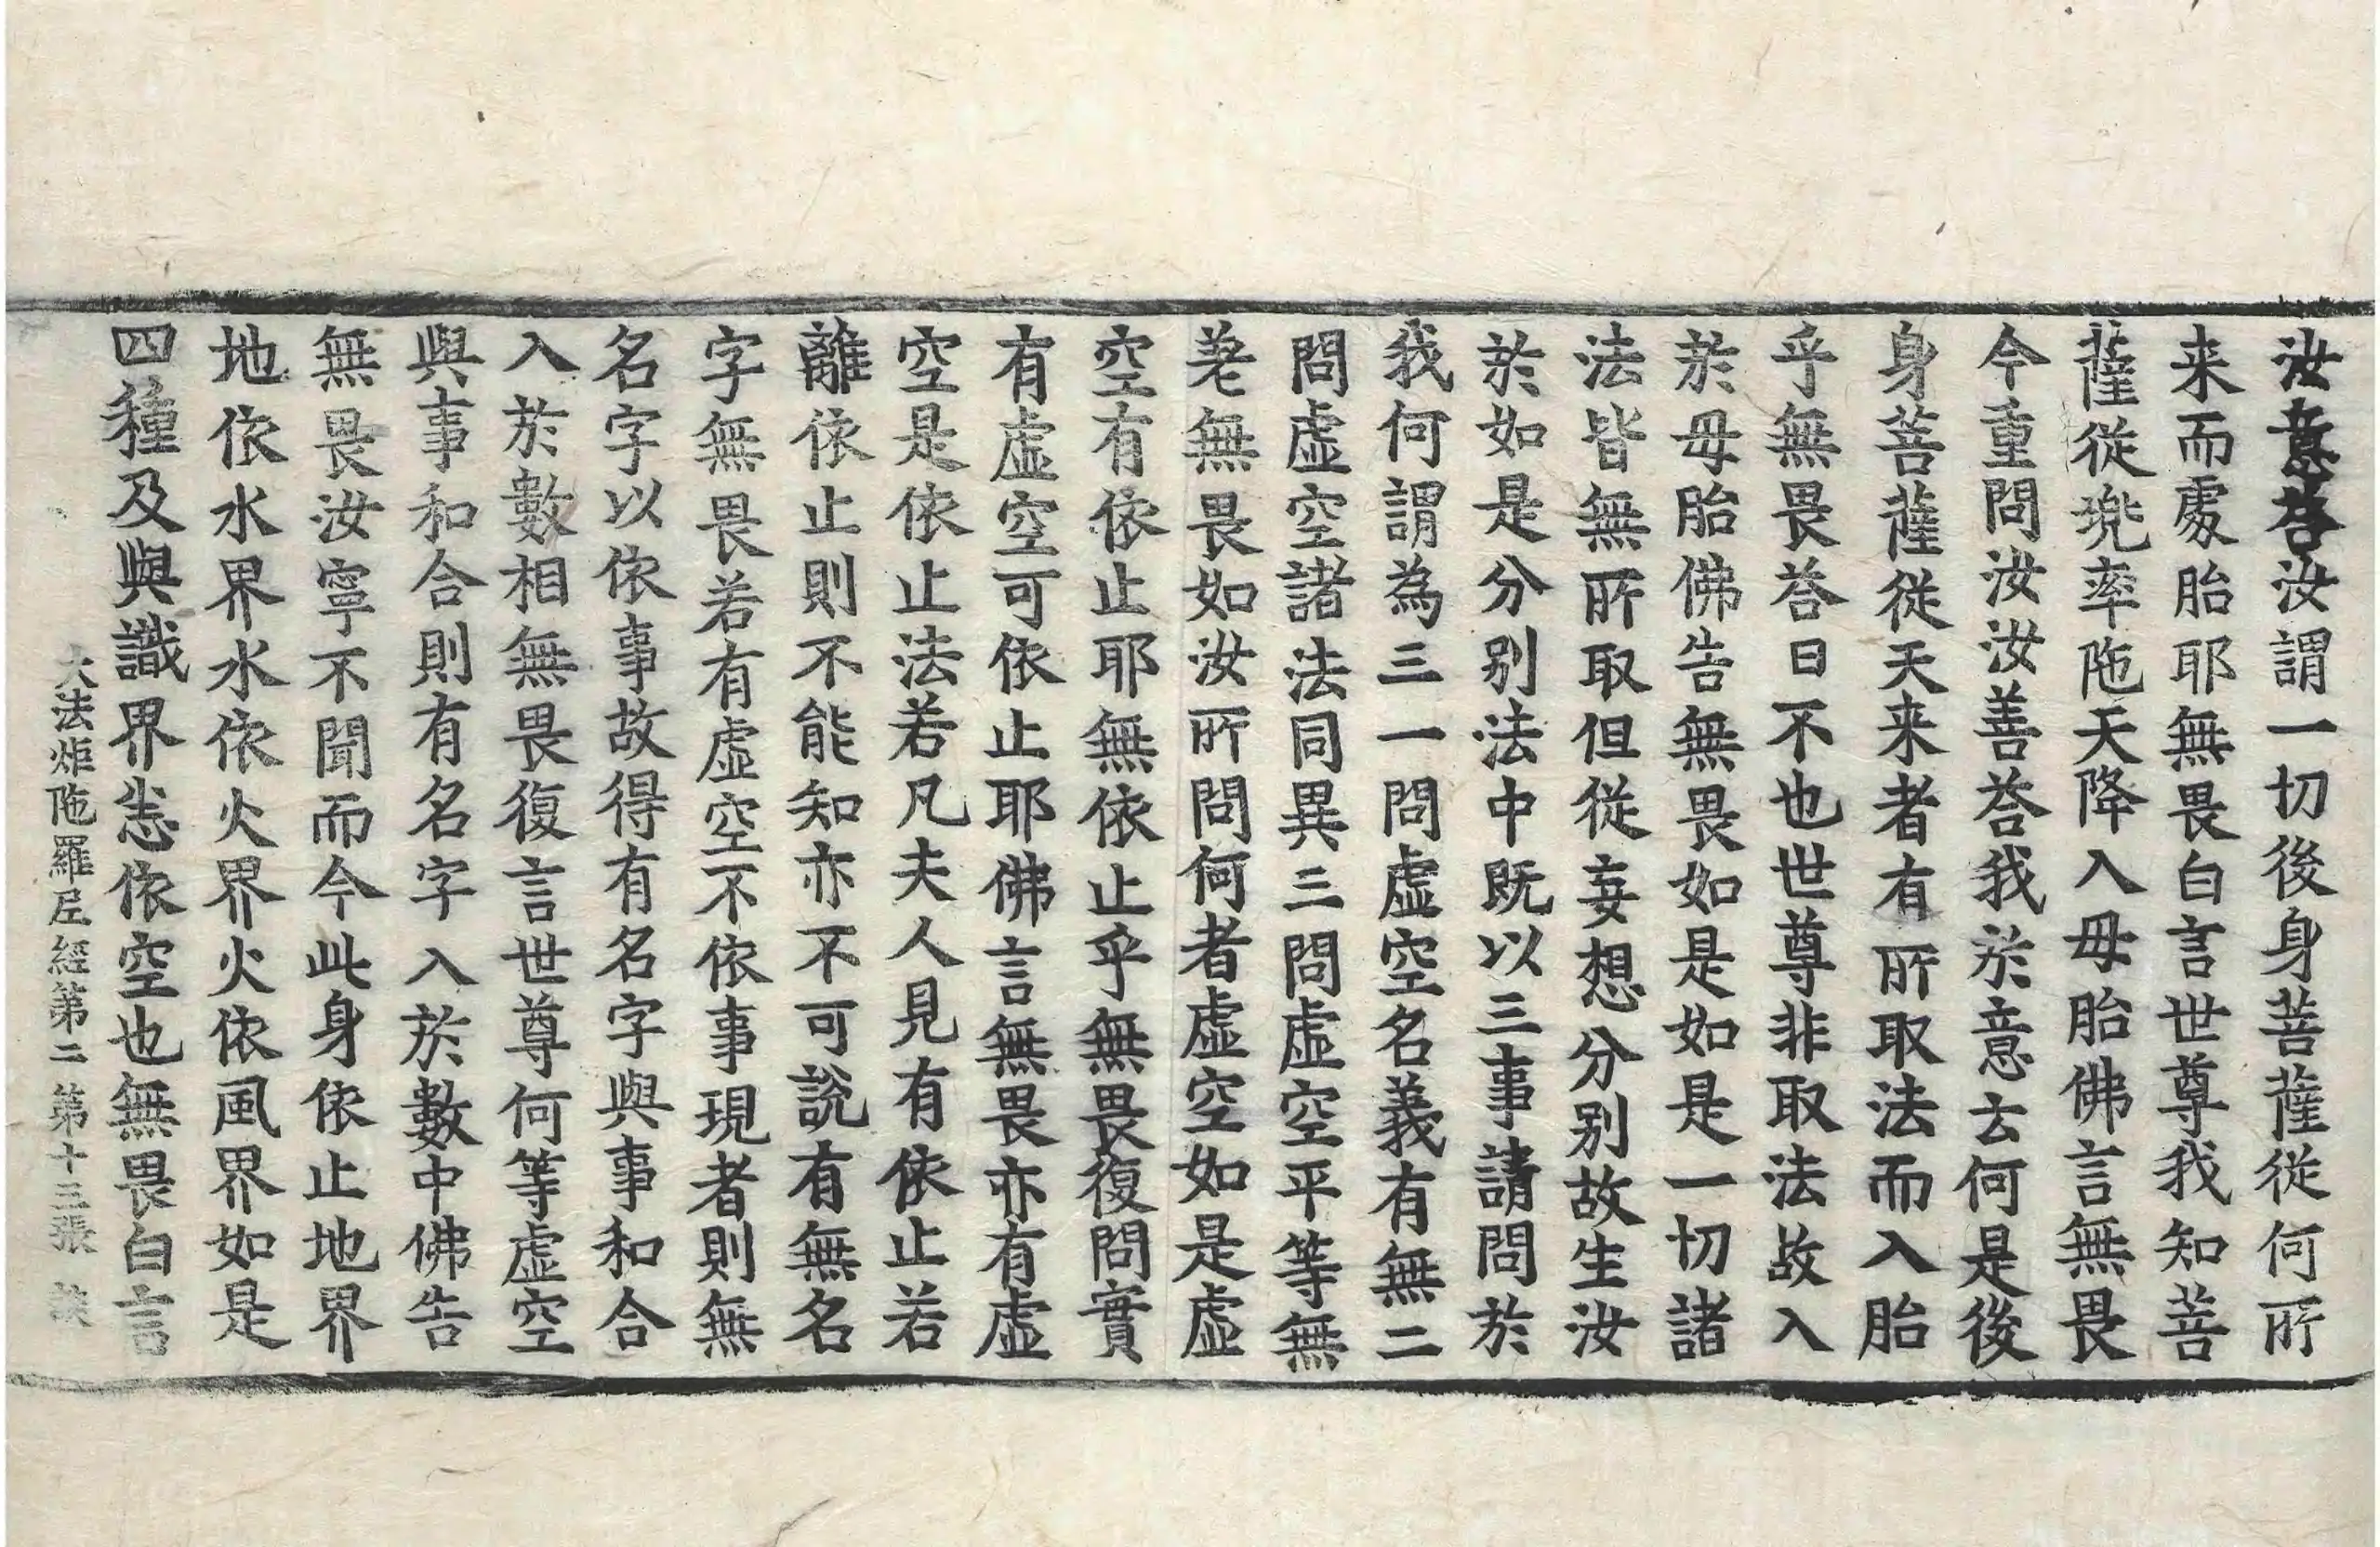 汝意答汝謂一切後身菩薩從何所
来而處胎耶無畏白言世尊我知菩
薩從兠率陁天降入母胎佛言無畏
今重問汝汝善荅我於意云何是後
身菩薩從天来者有所取法而入胎
乎無畏荅曰不也世尊非取法故入
於母胎佛告無畏如是如是一切諸
法皆無所取但從妄想分别故生汝
於如是分别法中既以三事請問於
我何謂為三一問虛空名義有無二
問虛空諸法同異三問虛空平等無
差無畏如汝所問何者虛空如是虛
空有依止耶無依止乎無畏復問實
有虛空可依止耶佛言無畏亦有虛
空是依止法若凡夫人見有依止若
離依止則不能知亦不可說有無名
字無畏若有虛空不依事現者則無
名字以依事故得有名字與事和合
入於數相無畏復言世尊何等虛空
與事和合則有名字入於數中佛告
無畏汝寧不聞而今此身依止地界
地依水界水依火界火依風界如是
四種及與識界恙依空也無畏白言
大法炬陁羅尼經第二 第十三張